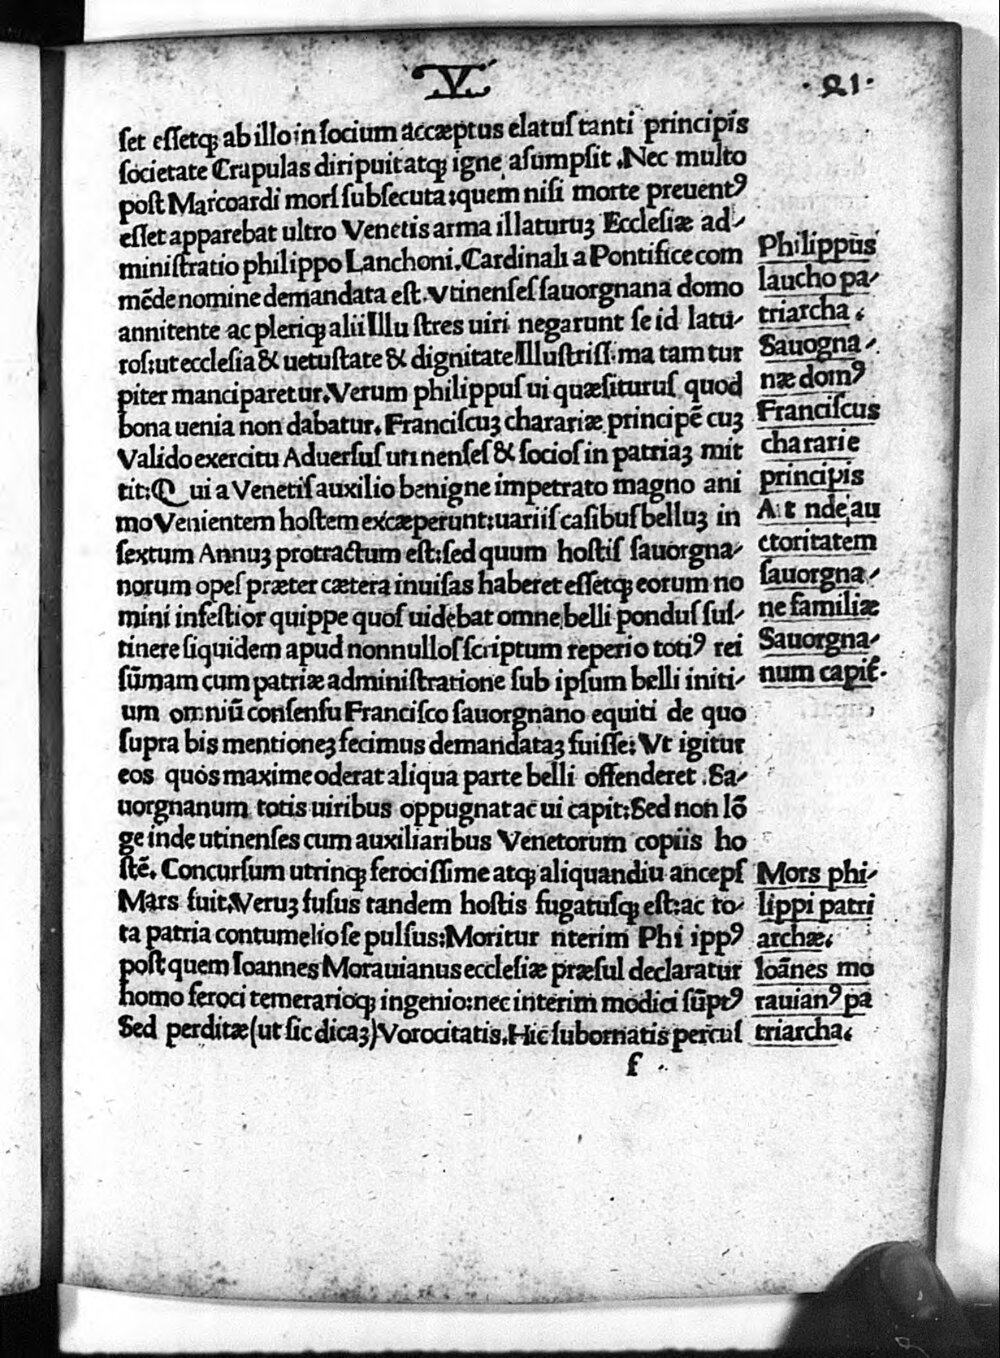 V
·21·
ſet eſſetqꝫ ab illo in ſocium accæptus elatuſ tanti principiſ
ſocietate Crapulas diripuit atqꝫ igne aſumpſit .Nec multo
poſt Marcoardi morſ ſubſecuta:quem niſi morte preuentꝰ
eſſet apparebat ultro Venetis arma illaturuꝫ Eccleſiæ ad-
miniſtratio philippo Lanchoni.Cardinali a Pontifice com
mēde nomine demandata eſt.Vtinenſeſ ſauorgnana domo
annitente ac pleriqꝫ alii Illu ſtres uiri negarunt ſe id latu-
roſ:ut eccleſia & uetuſtate & dignitate Illuſtriſſ.ma tam tur
piter manciparetur.Verum philippuſ ui quæſituruſ quod
bona uenia non dabatur. Franciſcuꝫ charariæ principē cuꝫ
Valido exercitu Aduerſuſ utinenſeſ & ſocioſ in patriaꝫ mit
tit:Q ui a Venetiſ auxilio benigne impetrato magno ani
mo Venientem hoſtem excæperunt:uariiſ caſibuſ belluꝫ in
ſextum Annuꝫ protractum eſt:ſed quum hoſtiſ ſauorgna-
norum opeſ præter cætera inuiſas haberet eſſetqꝫ eorum no
mini infeſtior quippe quoſ uidebat omne belli ponduſ ſuſ-
tinere ſiquidem apud nonnulloſ ſcriptum reperio totiꝰ rei
ſūmam cum patriæ adminiſtratione ſub ipſum belli initi-
um omniū conſenſu Franciſco ſauorgnano equiti de quo
ſupra bis mentioneꝫ fecimus demandataꝫ fuiſſe: Vt igitur
eos quos maxime oderat aliqua parte belli offenderet .Sa-
uorgnanum totis uiribus oppugnat ac ui capit:Sed non lō
ge inde utinenſes cum auxiliaribus Venetorum copiis ho
ſtē. Concurſum utrinqꝫ ferociſſime atqꝫ aliquandiu ancepſ
Mars fuit.Veruꝫ fuſus tandem hoſtis fugatuſqꝫ eſt:ac to-
ta patria contumelioſe pulſus:Moritur nterim Phi ippꝰ
poſt quem Ioannes Morauianus eccleſiæ præſul declaratur
homo feroci temerarioqꝫ ingenio:nec interim modici ſūptꝰ
Sed perditæ (ut ſic dicaꝫ) Vorocitatis.Hic ſubornatis percuſ
f
Philippus
laucho pa-
triarcha.
Sauogna-
næ domꝰ
Franciſcus
chararie
principis
At nde au
ctoritatem
ſauorgna-
ne familiæ
Sauorgna-
num capit.
Mors phi-
lippi patri
archæ.
Ioānes mo
rauianꝰ pa
triarcha.